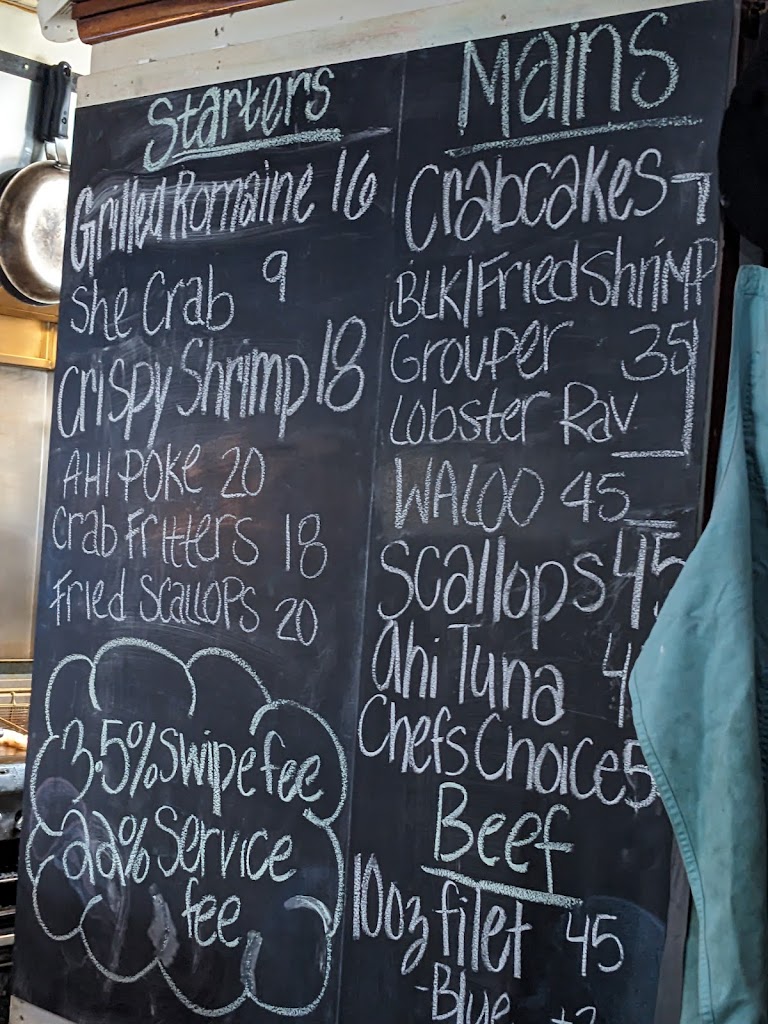 Starters
Grilled Romaine 16
She Crab 9
Crispy Shrimp 18
AHI POKE 20
Crab Fritters 18
Fried Scallops 20
3.5% Swipe fee
22% Service
fee
Mains
Crabcakes
BLK/Fried Shrimp
Grouper 35
Lobster Rav
WALOO 45
Scallops 45
Ahi Tuna 4
Chefs Choice 5
Beef
10oz filet 45
-Blue